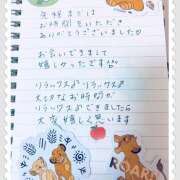 先程までは
お時間をいただき
ありがとうございましたm
お会いできまして
嬉しかったですm
リラックス♪リラックス♪
大切なお時間が
リラックスできましたら
大変嬉しく思います
ROAR!